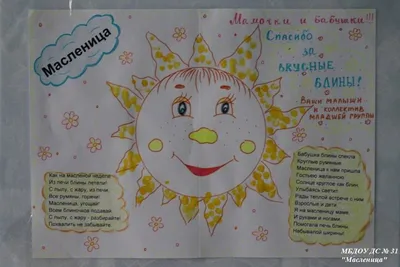 Масленица
Мамочки и бабушки!!!
Спасибо
за
вкусные
блины!
Ваши малыши
и коллектив
младшей группы
Как на масляной неделе
Из печи блины летели!
С пылу, с жару, из печи,
Все румяны, горячи!
Масленица, угощай!
Всем блиночков подавай.
С пылу, с жару - разбирайте!
Похвалить не забывайте.
Бабушка блины спекла
Круглые румяные
Масленица к нам пришла
Гостьею желанною
Солнце круглое как блин
Улыбаясь светит
Рады теплой встрече с ним
Взрослые и дети
И на масленицу мама
И руками и ногами
Помогала печь блины
МБДОУ ДС № 31
"Масленица"